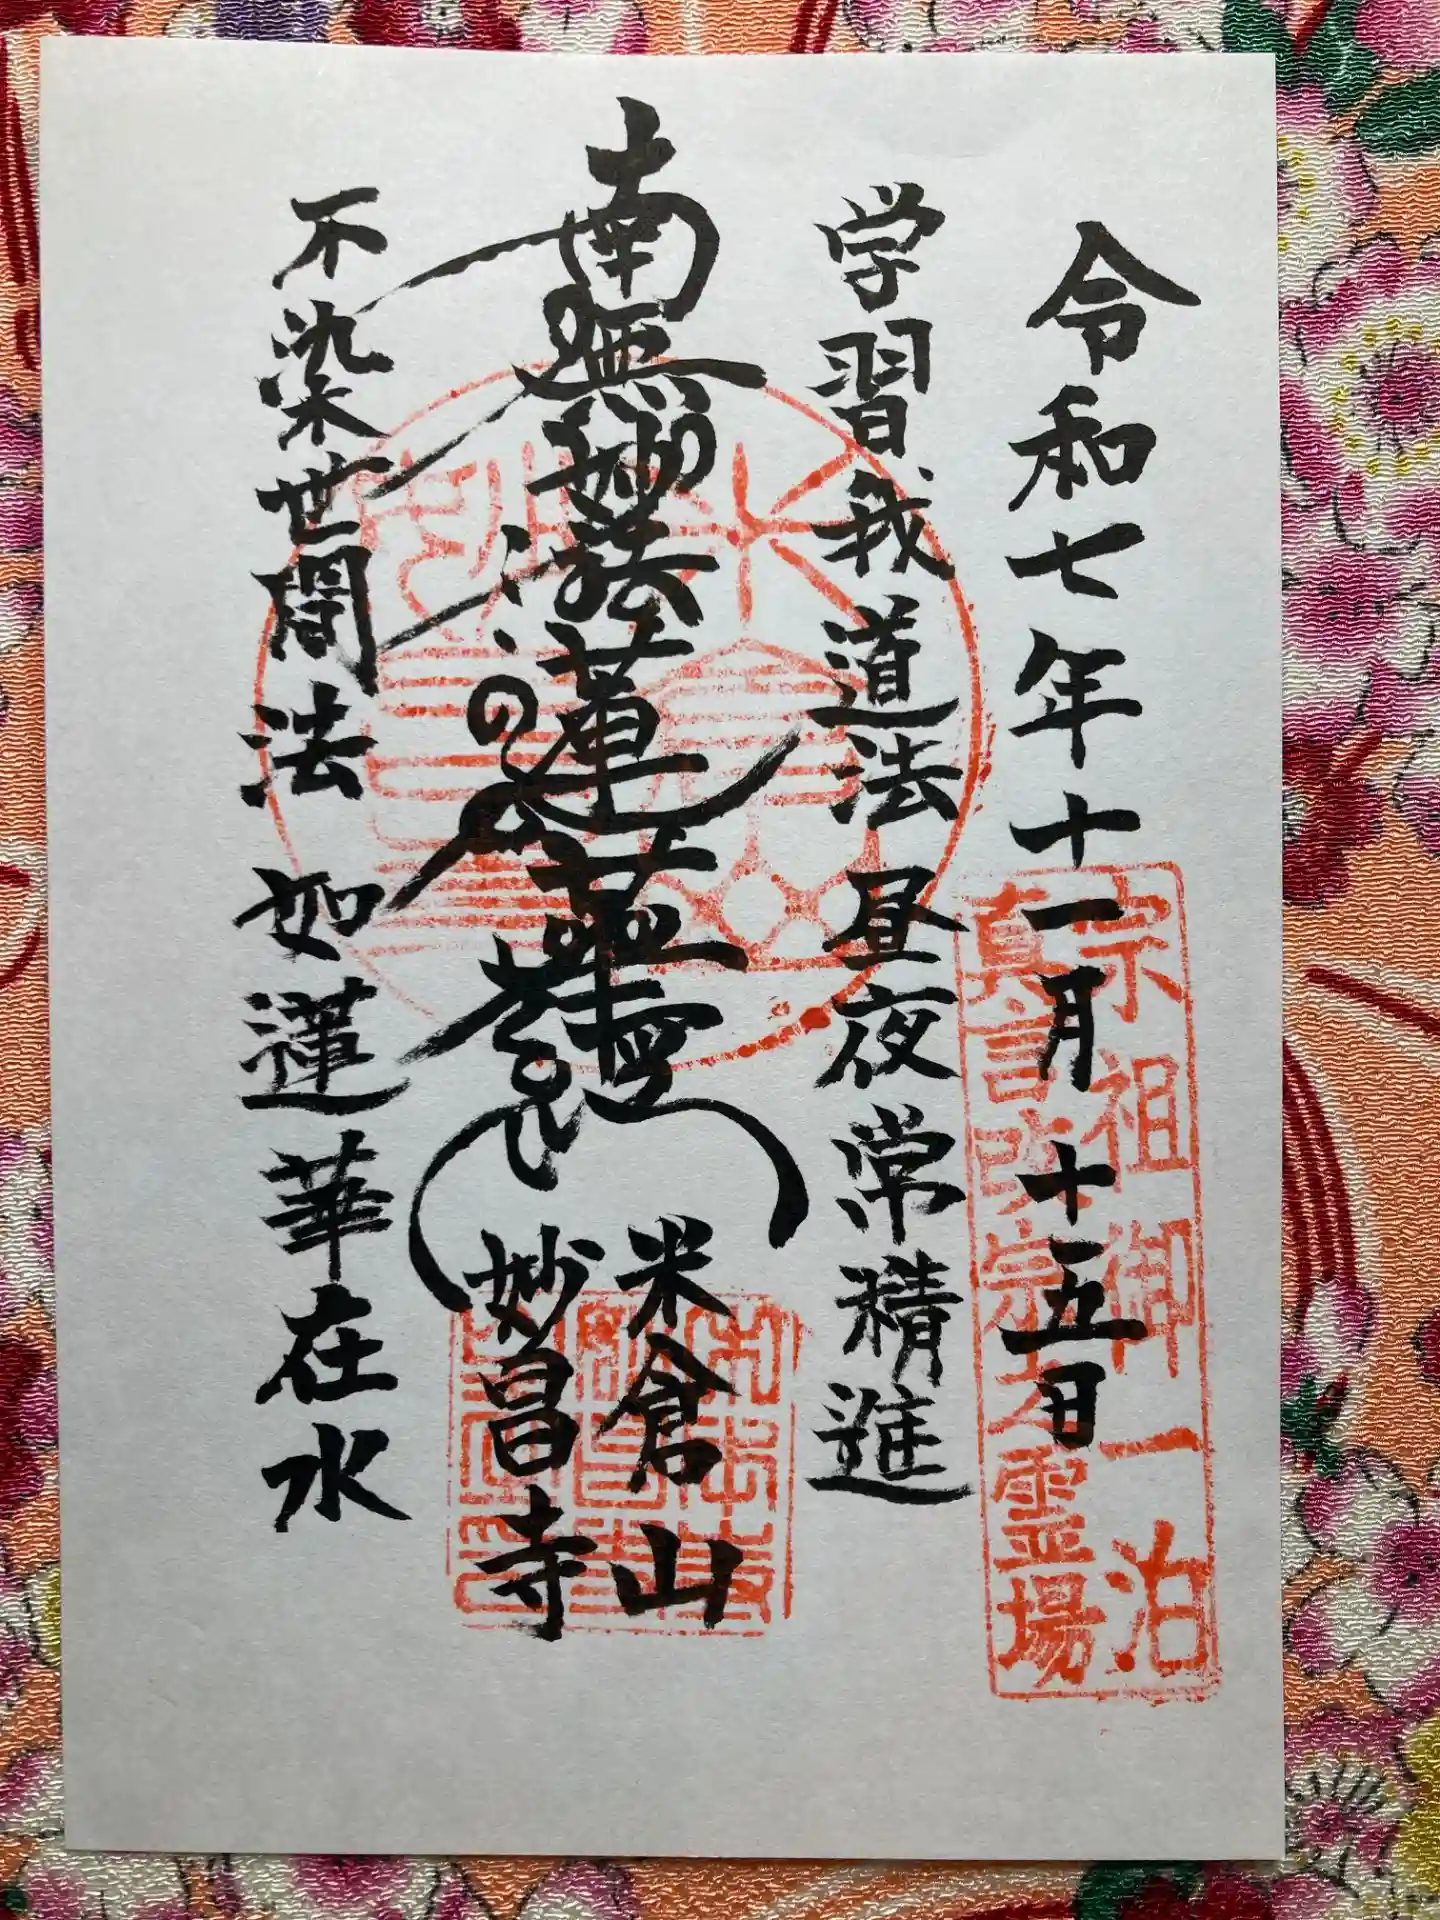 令和七年十一月十五日
宗祖御一泊
真言改宗之霊場
学習我道法 昼夜常精進
南無妙法蓮華経
米倉山
妙昌寺
不染世間法 如蓮華在水